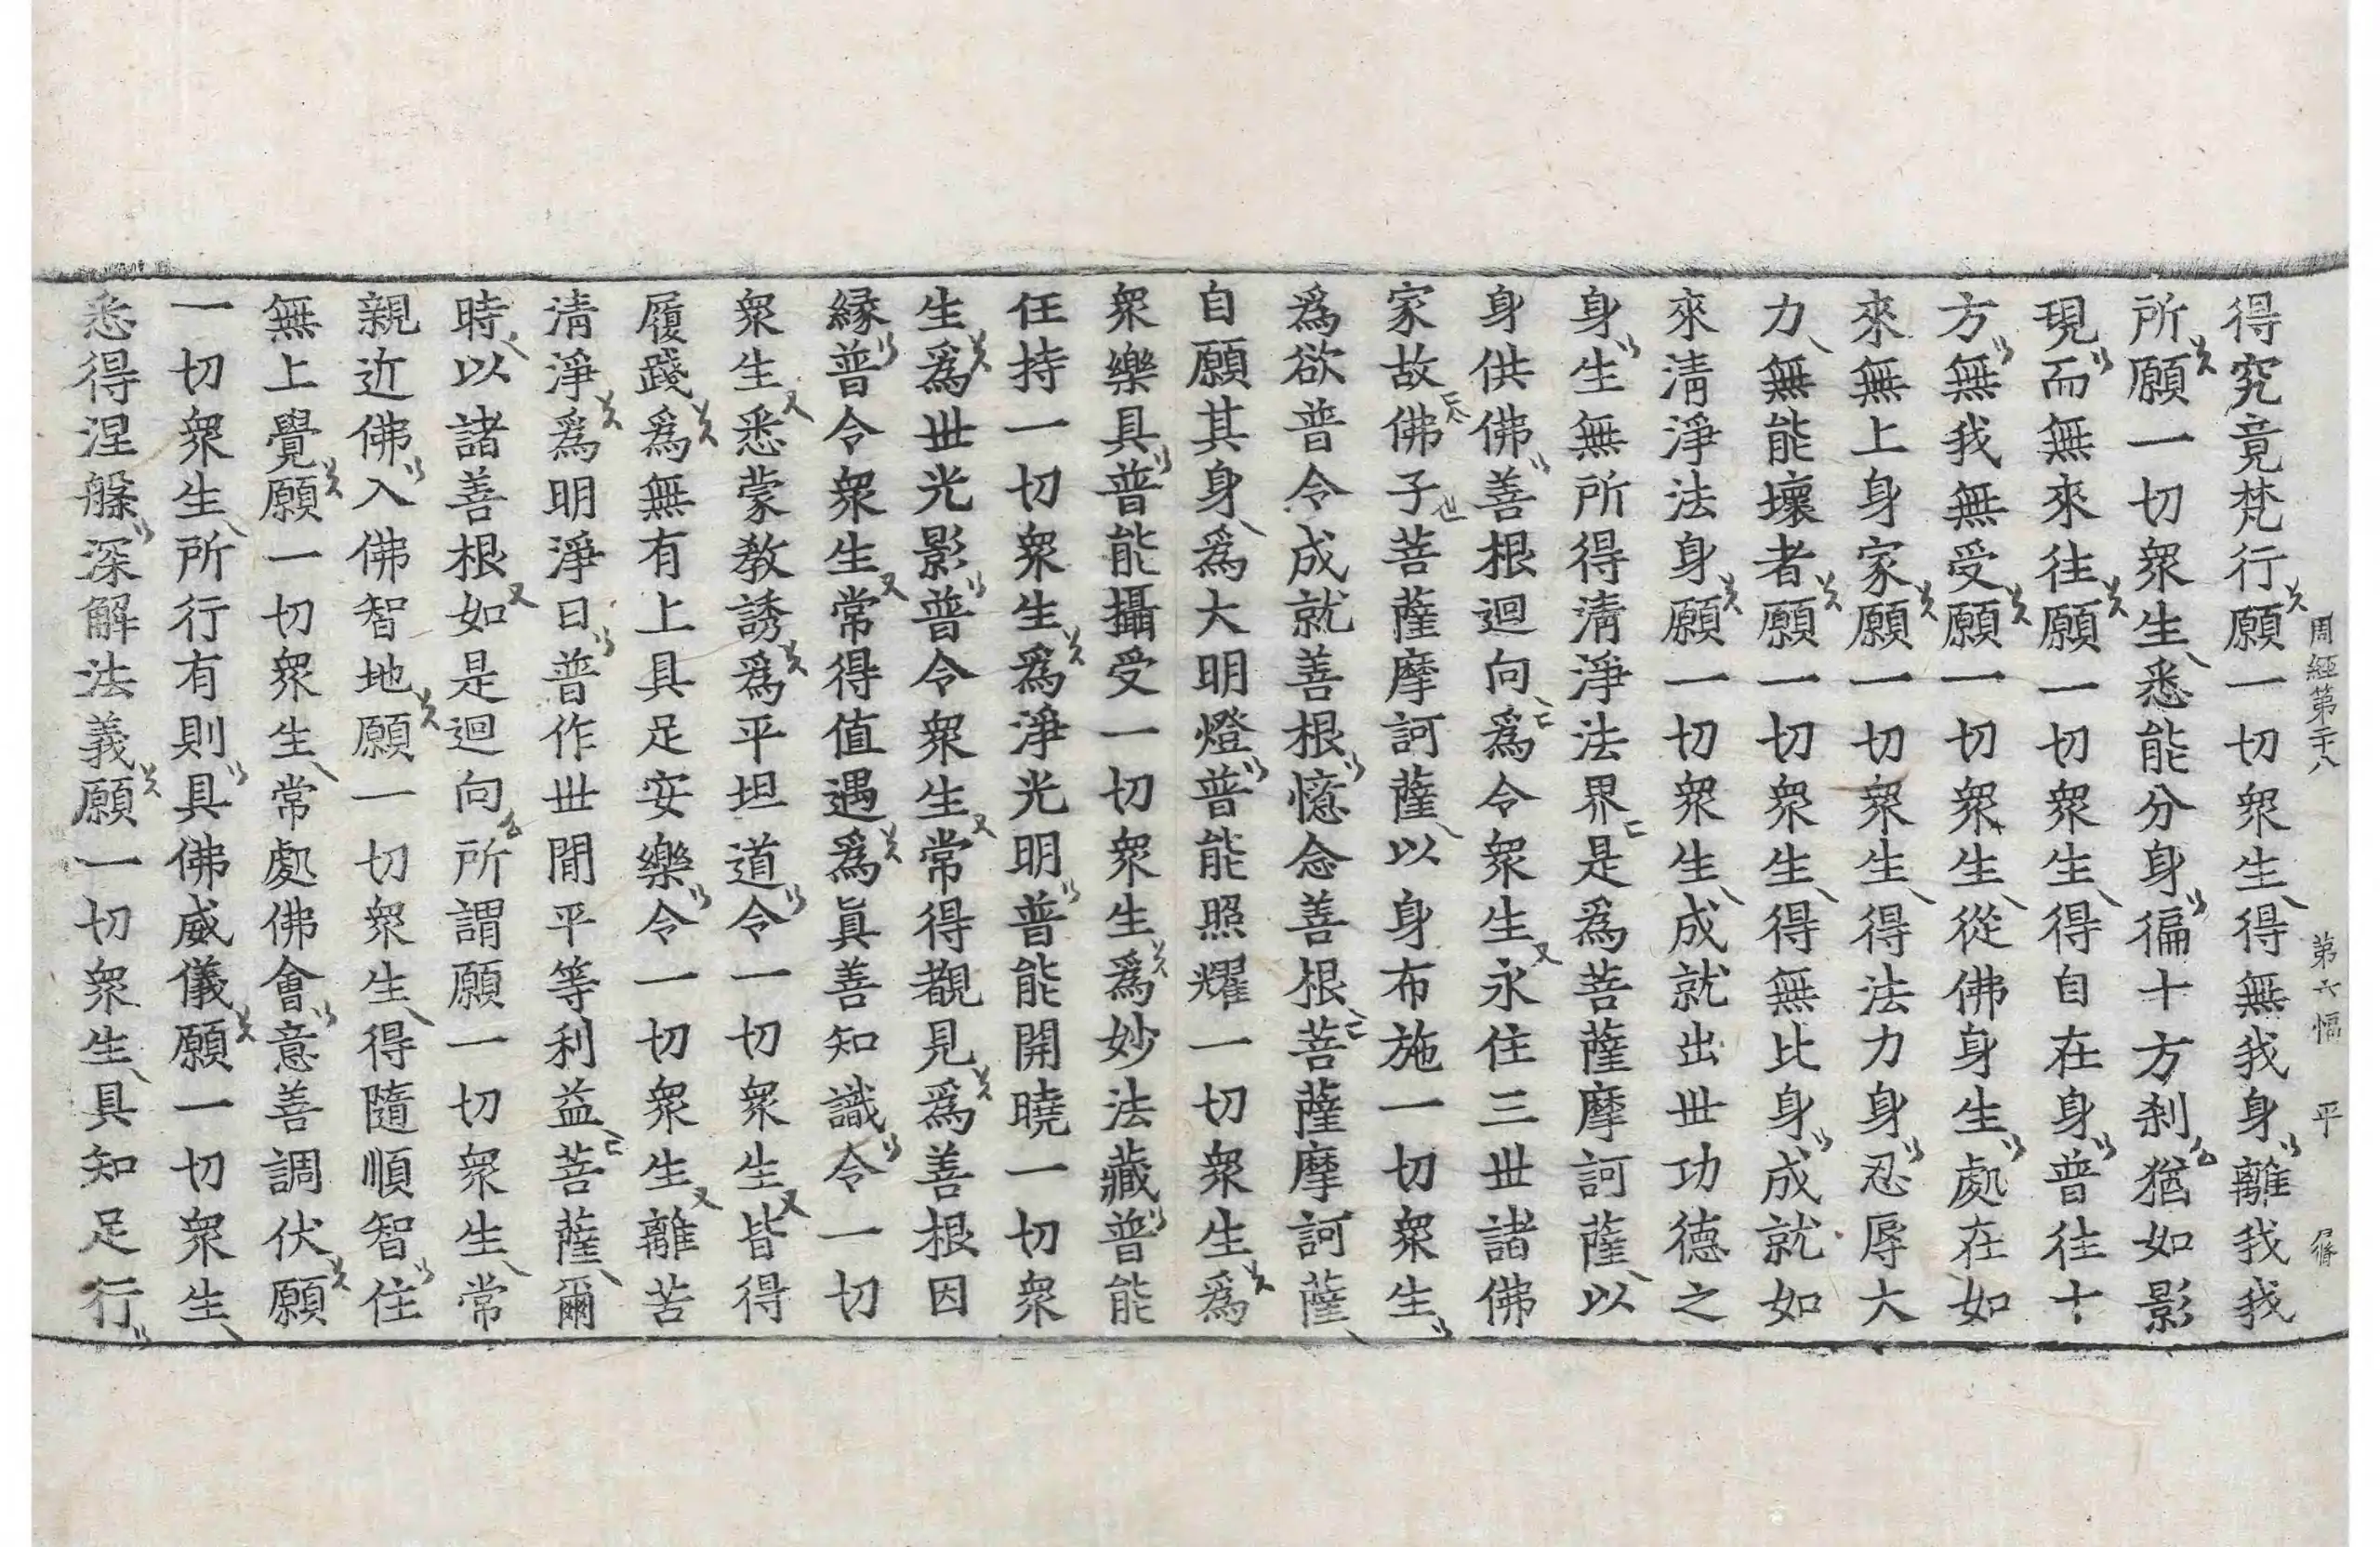 周經第二十八 第六幅 平
得究竟梵行願一切衆生得無我身離我我
所願一切衆生悉能分身徧十方刹猶如影
現而無來往願一切衆生得自在身普往十
方無我無受願一切衆生從佛身生處在如
來無上身家願一切衆生得法力身忍辱大
力無能壞者願一切衆生得無比身成就如
來清淨法身願一切衆生成就出世功德之
身生無所得清淨法界是爲菩薩摩訶薩以
身供佛善根迴向爲令衆生永住三世諸佛
家故佛子菩薩摩訶薩以身布施一切衆生
爲欲普令成就善根憶念善根菩薩摩訶薩
自願其身爲大明燈普能照耀一切衆生爲
衆樂具普能攝受一切衆生爲妙法藏普能
任持一切衆生爲淨光明普能開曉一切衆
生爲世光影普令衆生常得覩見爲善根因
緣普令衆生常得值遇爲眞善知識令一切
衆生悉蒙教誘爲平坦道令一切衆生皆得
履踐爲無有上具足安樂令一切衆生離苦
清淨爲明淨日普作世間平等利益菩薩爾
時以諸善根如是迴向所謂願一切衆生常
親近佛入佛智地願一切衆生得隨順智住
無上覺願一切衆生常處佛會意善調伏願
一切衆生所行有則具佛威儀願一切衆生
悉得涅槃深解法義願一切衆生具知足行